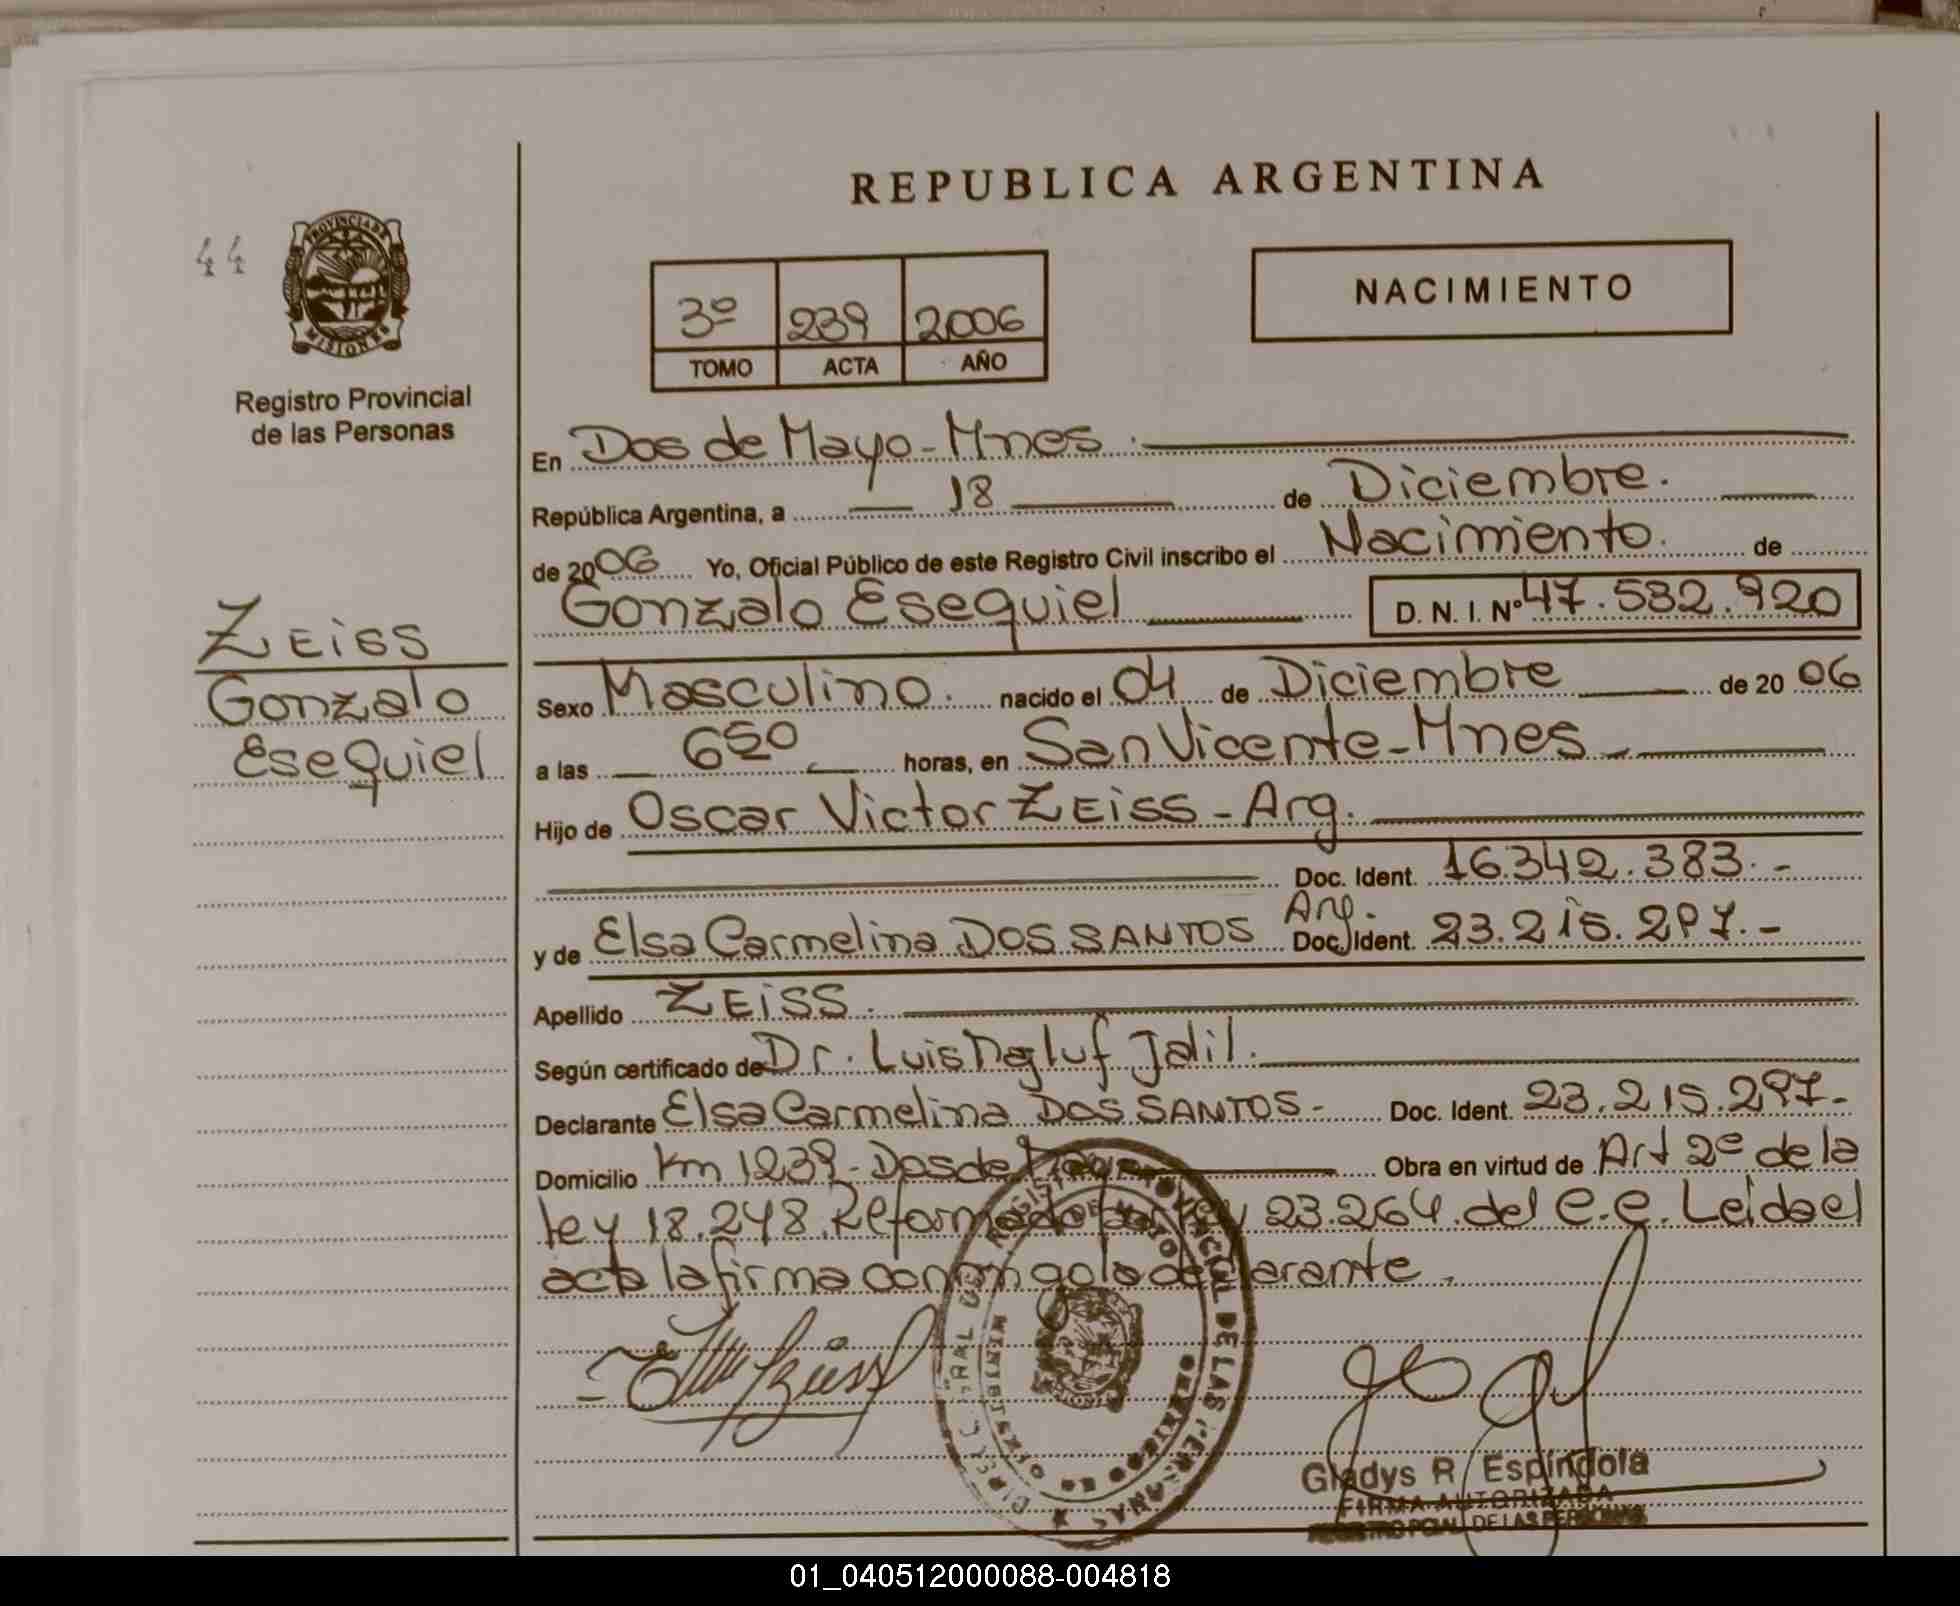 REPUBLICA ARGENTINA
44
PROVINCIA DE
MISIONES
Registro Provincial
de las Personas
3º 239 2006
TOMO ACTA AÑO
NACIMIENTO
En Dos de Mayo-Mnes.
República Argentina, a 18 de Diciembre.
de 2006 Yo, Oficial Público de este Registro Civil inscribo el Nacimiento. de
Gonzalo Esequiel D. N. I. Nº 47.532.920
ZEiSS
Gonzalo
Esequiel
Sexo Masculino. nacido el 04 de Diciembre de 2006
a las 650 horas, en San Vicente-Mnes
Hijo de Oscar Victor ZEiSS-Arg.
Doc. Ident. 16.342.383.-
y de Elsa Carmelina DOS SANTOS Arg. Doc. Ident. 23.215.297.-
Apellido ZEiSS.
Según certificado de Dr. Luis Jalil.
Declarante Elsa Carmelina DOS SANTOS- Doc. Ident. 23.215.297-
Domicilio Km 1239-Dos de Mayo Obra en virtud de Art 2º de la
ley 18.248. Reformado por ley 23.264. del C.C. Leida el
acta la firma conmigo la declarante.
Gladys R. Espíndola
FIRMA AUTORIZADA
REGISTRO PCIAL DE LAS PERSONAS
01_040512000088-004818